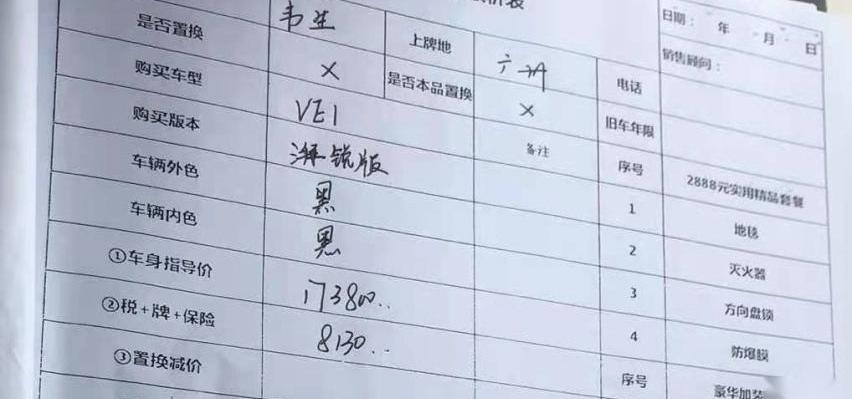 析表
日期： 年 月 日
韦生 上牌地 电话 销售顾问：
是否置换 × 是否本品置换 × 旧车年限
购买车型 VE1 备注 序号 2888元实用精品套餐
购买版本 湃锐版 1 地毯
车辆外色 黑 2 灭火器
车辆内色 黑 3 方向盘锁
①车身指导价 173800.. 4 防爆膜
②税+牌+保险 8130.. 序号 豪华加装
③置换减价